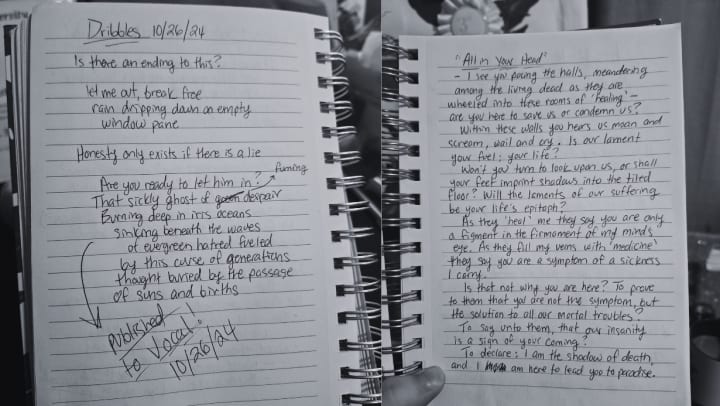 Dribbles 10/26/24
Is there an ending to this?
let me out, break free
rain dripping down an empty
window pane
Honesty only exists if there is a lie
Are you ready to let him in?
fuming
That sickly ghost of despair
Burning deep in iris oceans
sinking beneath the waves
of evergreen hatred fueled
by this curse of generations
thought buried by the passage
of suns and births
Published
to Vocal!
10/26/24
"All in Your Head"
- I see you pacing the halls, meandering
among the living dead as they are
wheeled into these rooms of 'healing' -
are you here to save us or condemn us?
Within these walls you hears us moan and
scream, wail and cry. Is our lament
your fuel; your life?
Won't you turn to look upon us, or shall
your feet imprint shadows into the tiled
floor? Will the laments of our suffering
be your life's epitaph?
As they 'heal' me they say you are only
a figment in the firmament of my mind's
eye. As they fill my veins with 'medicine'
they say you are a symptom of a sickness
I carry.
Is that not why you are here? To prove
to them that you are not the symptom, but
the solution to all our mortal troubles?
To say unto them, that our insanity
is a sign of your coming?
To declare: I am the shadow of death,
and I am here to lead you to paradise.